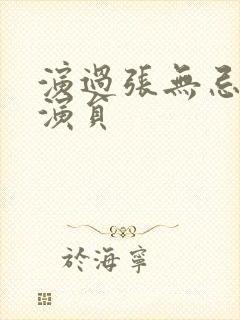 演過張無忌
演員
於海寧